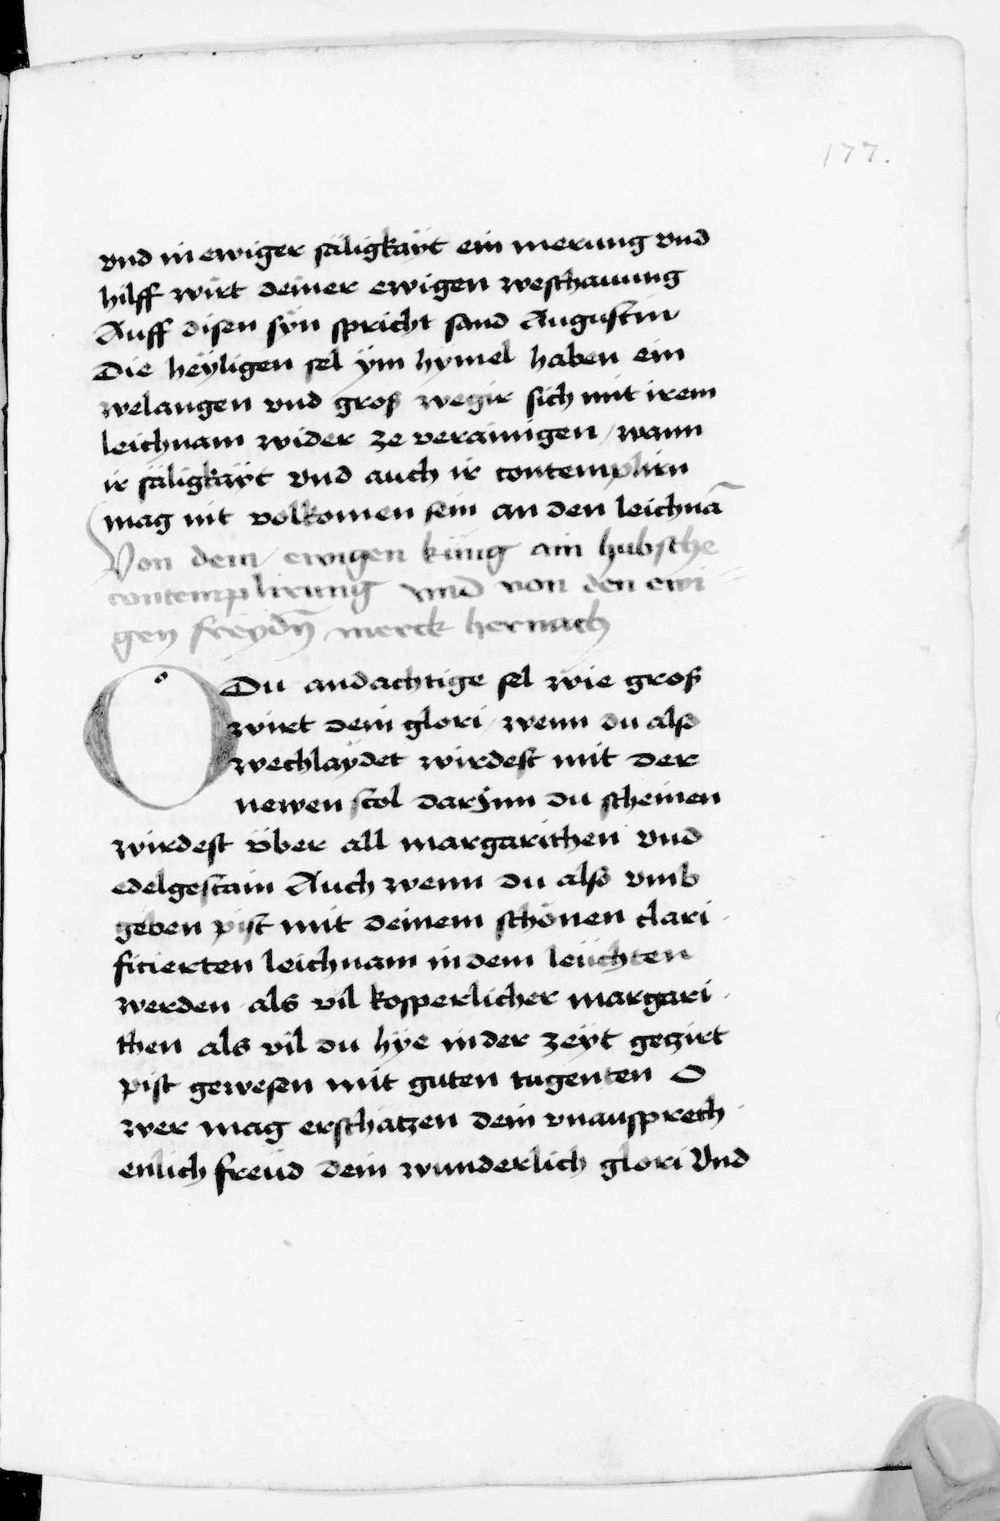 177.
vnd in ewiger säligkaÿt ein merung vnd
hilff wirt deiner ewigen weschauung
Auff disen sÿn spricht sand Augustin
Die heÿligen sel ÿm hÿmel haben ein
welangen vnd groß wegir sich mit irem
leichnam wider ze verainigen / wann
ir säligkaÿt vnd auch ir contemplirn
mag nit volkomen sein an den leichnā
Von dem ewigen küng ain hubsche
contemplirung vnd von den ewi-
gen freydn̄ merck hernach
O Du andachtige sel wie groß
wirt dein glori / wenn du also
wechlaÿdet wirdest mit der
newen stol darÿnn du scheinen
wirdest über all margarithen vnd
edelgestain Auch wenn du also vmb
geben pist mit deinem schönen clari-
ficierten leichnam in dem leüchten
werden als vil kosperlicher margari-
then als vil du hÿe in der zeÿt gezirt
pist gewesen mit guten tugenten O
wer mag erschatzen dein vnausprech-
enlich freüd dein wunderlich glori Vnd